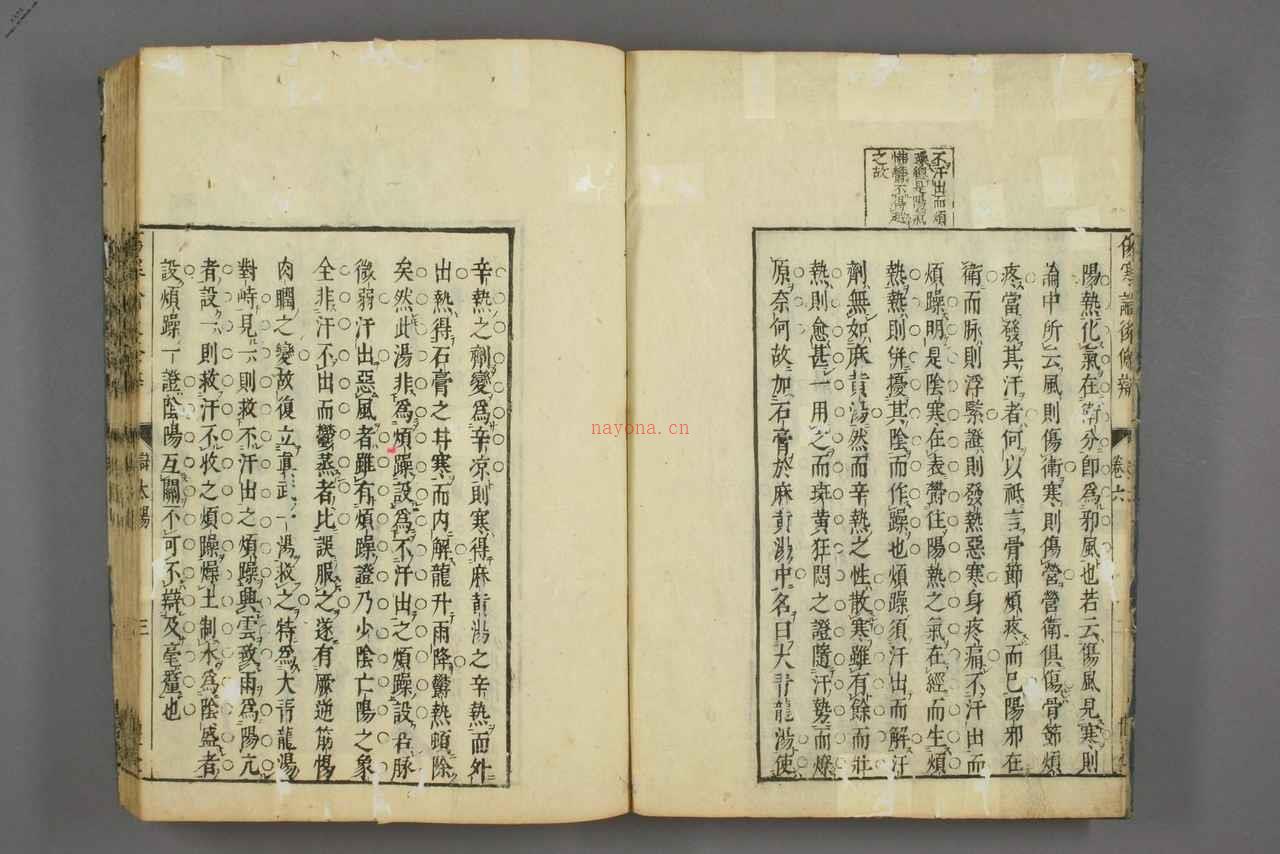 傷寒論後條辨
卷六
不汗出而煩
躁總是陽氣
怫鬱不得越
之故
陽熱化氣在寄分卽爲邪風也若云傷風見寒則
論中所云風則傷衛寒則傷營營衛俱傷骨節煩
疼當發其汗者何以祗言骨節煩疼而已陽邪在
衛而脉則浮緊證則發熱惡寒身疼痛不汗出而
煩躁明是陰寒在表欝住陽熱之氣在經而生煩
熱熱則併擾其陰而作躁也煩躁須汗出而解汗
劑無如麻黄湯然而辛熱之性散寒雖有餘而壯
熱則愈甚一用之而斑黄狂悶之證隨汗勢而燎
原奈何故加石膏於麻黄湯中名曰大青龍湯使
辛熱之劑變爲辛凉則寒得麻黄湯之辛熱而外
出熱得石膏之甘寒而内解龍升雨降欝熱頓除
矣然此湯非爲煩躁設爲不汗出之煩躁設若脉
微弱汗出惡風者雖有煩躁證乃少陰亡陽之象
全非汗不出而鬱蒸者比誤服之遂有厥逆筋惕
肉瞤之變故復立眞武一湯救之特爲大青龍湯
對峙見一則救不汗出之煩躁興雲致雨爲陽亢
者設一則救汗不收之煩躁燥土制水爲陰盛者
設煩躁一證陰陽互關不可不辯及毫釐也
太陽
三
nayona.cn